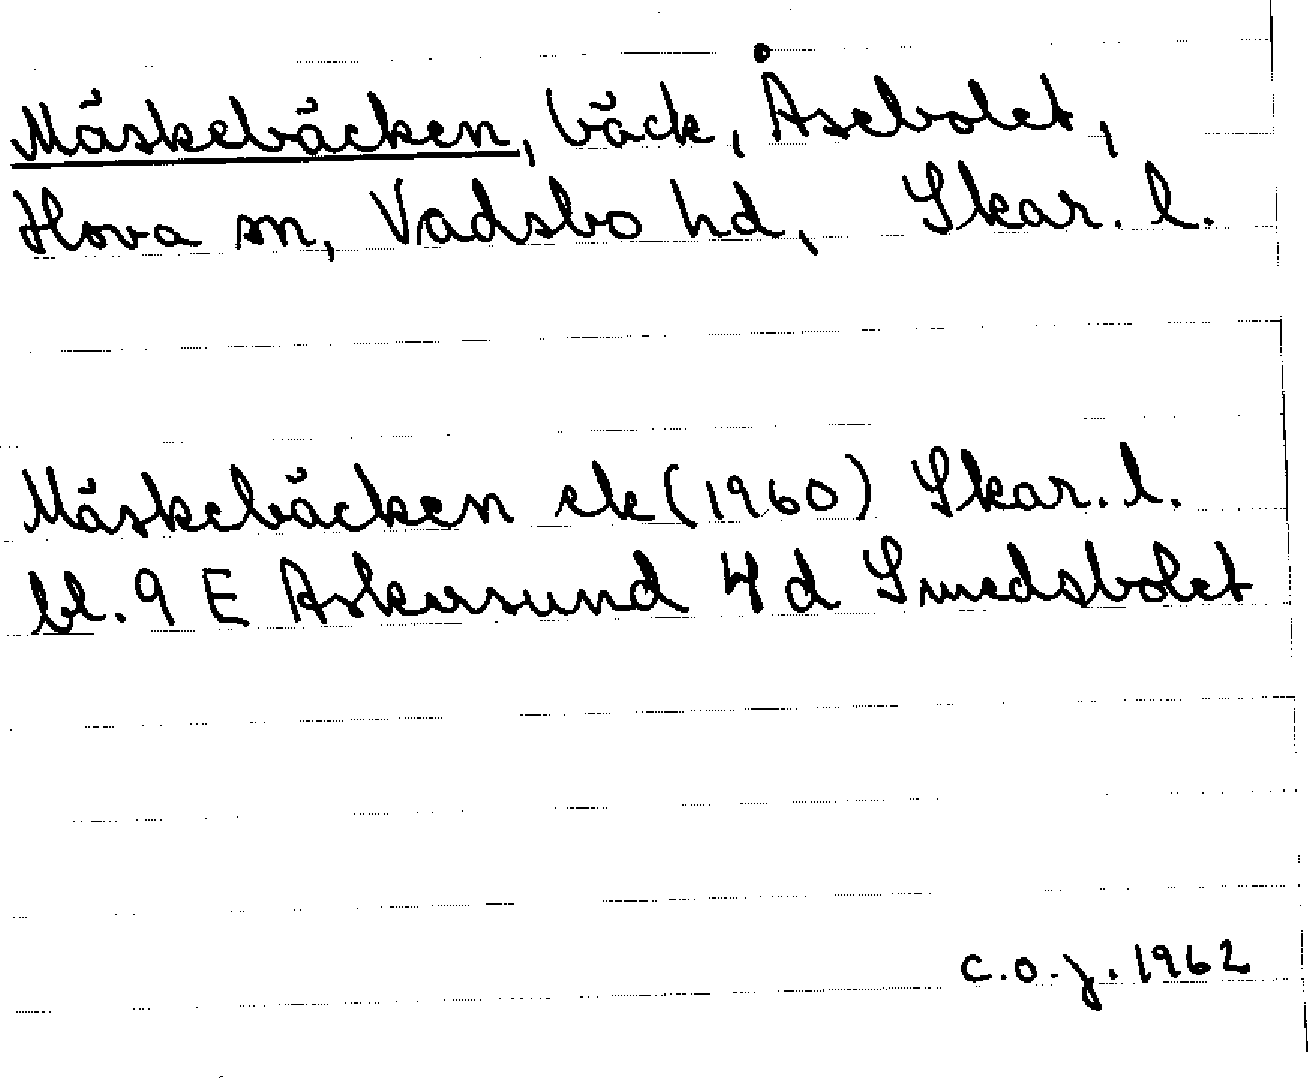 Mäskebäcken, bäck, Åsebolet,
Hova sn, Vadsbo hd, Skar. l.
Mäskebäcken ek (1960) Skar. l.
bl. 9 E Askersund 4 d Smedsbolet
C.O.J. 1962